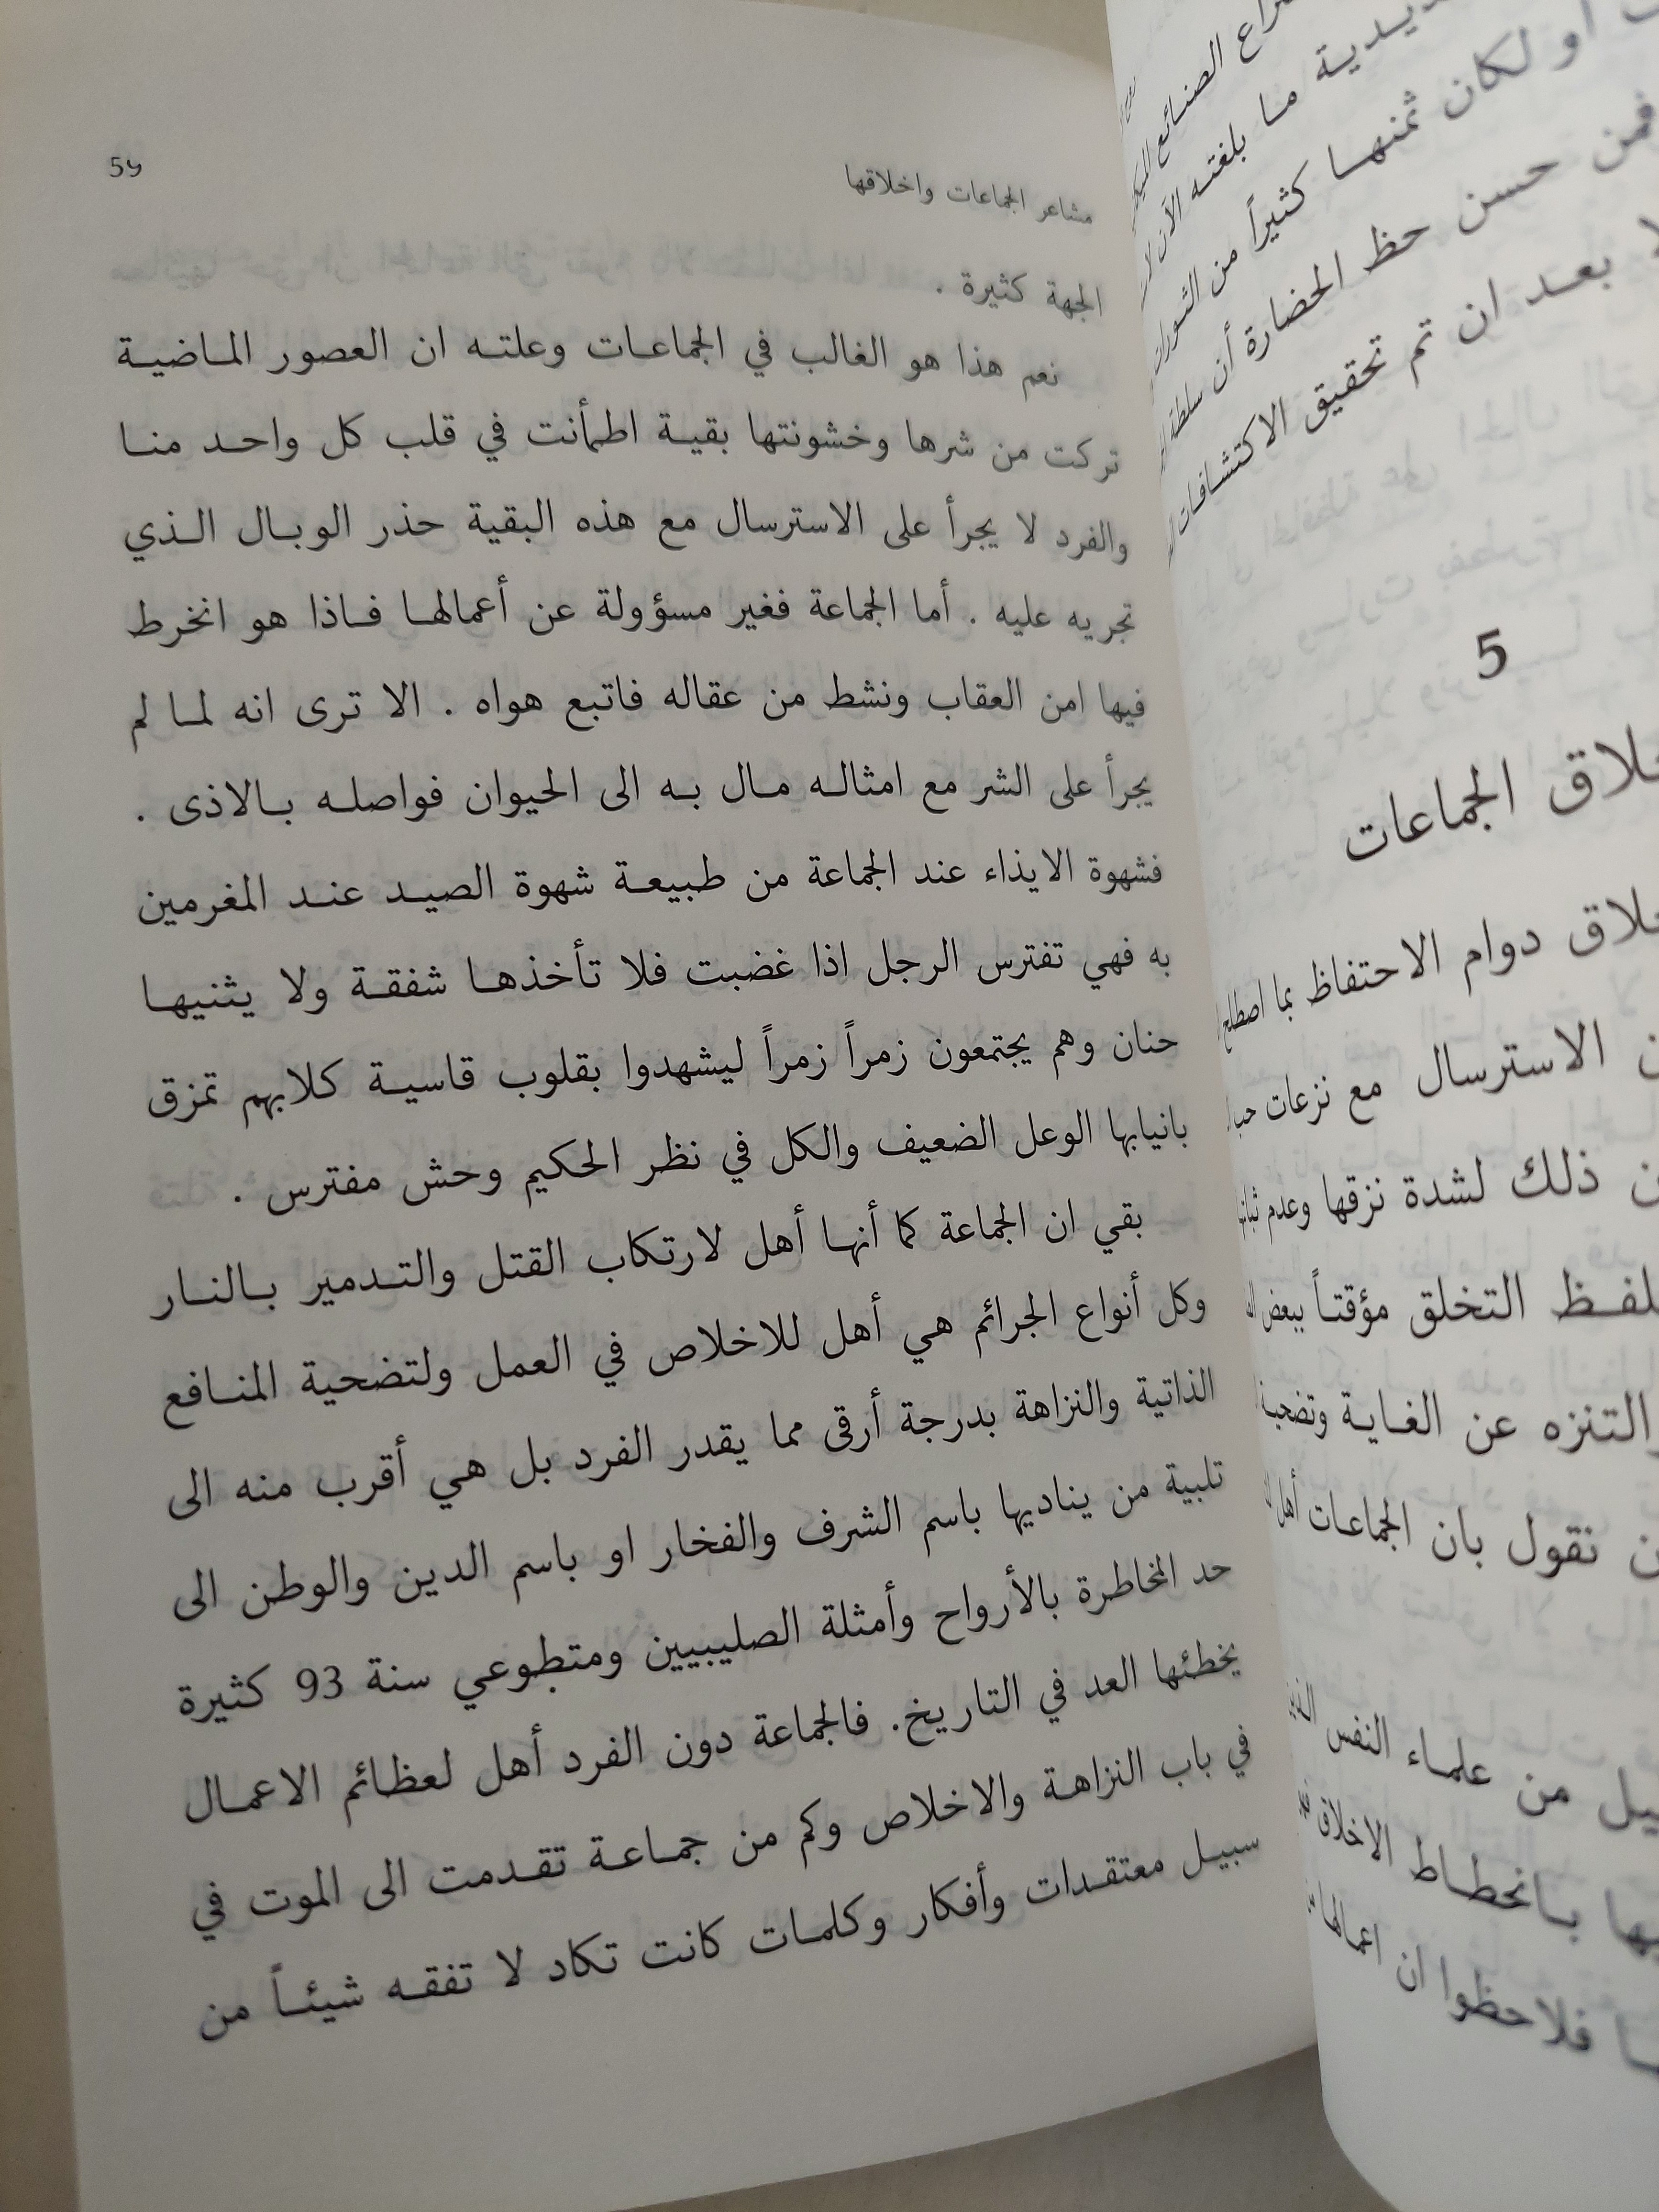 مشاعر الجماعات واخلاقها
59
الجهة كثيرة .
نعم هذا هو الغالب في الجماعات وعلته ان العصور الماضية
تركت من شرها وخشونتها بقية اطمأنت في قلب كل واحد منا
والفرد لا يجرأ على الاسترسال مع هذه البقية حذر الوبال الذي
تجريه عليه . أما الجماعة فغير مسؤولة عن أعمالها فاذا هو انخرط
فيها امن العقاب ونشط من عقاله فاتبع هواه . الا ترى انه لما لم
يجرأ على الشر مع امثاله مال به الى الحيوان فواصله بالاذى .
فشهوة الايذاء عند الجماعة من طبيعة شهوة الصيد عند المغرمين
به فهي تفترس الرجل اذا غضبت فلا تأخذها شفقة ولا يثنيها
حنان وهم يجتمعون زمراً زمراً ليشهدوا بقلوب قاسية كلابهم تمزق
بانيابها الوعل الضعيف والكل في نظر الحكيم وحش مفترس .
بقي ان الجماعة كما أنها أهل لارتكاب القتل والتدمير بالنار
وكل أنواع الجرائم هي أهل للاخلاص في العمل ولتضحية المنافع
الذاتية والنزاهة بدرجة أرقى مما يقدر الفرد بل هي أقرب منه الى
تلبية من يناديها باسم الشرف والفخار او باسم الدين والوطن الى
حد المخاطرة بالأرواح وأمثلة الصليبيين ومتطوعي سنة 93 كثيرة
يخطئها العد في التاريخ. فالجماعة دون الفرد أهل لعظائم الاعمال
في باب النزاهة والاخلاص وكم من جماعة تقدمت الى الموت في
سبيل معتقدات وأفكار وكلمات كانت تكاد لا تفقه شيئاً من
الصنائع
ما بلغته الآن
او لكان ثمنها كثيراً من الثورات
فمن حسن حظ الحضارة أن سلطة
بعد ان تم تحقيق الاكتشافات
5
الجماعات
دوام الاحتفاظ بما اصطلح
الاسترسال مع نزعات
ذلك لشدة نزقها وعدم
التخلق مؤقتاً ببعض
والتنزه عن الغاية
نقول بان الجماعات أهل
من علماء النفس
بانحطاط الاخلاق
فلاحظوا ان اعمالها